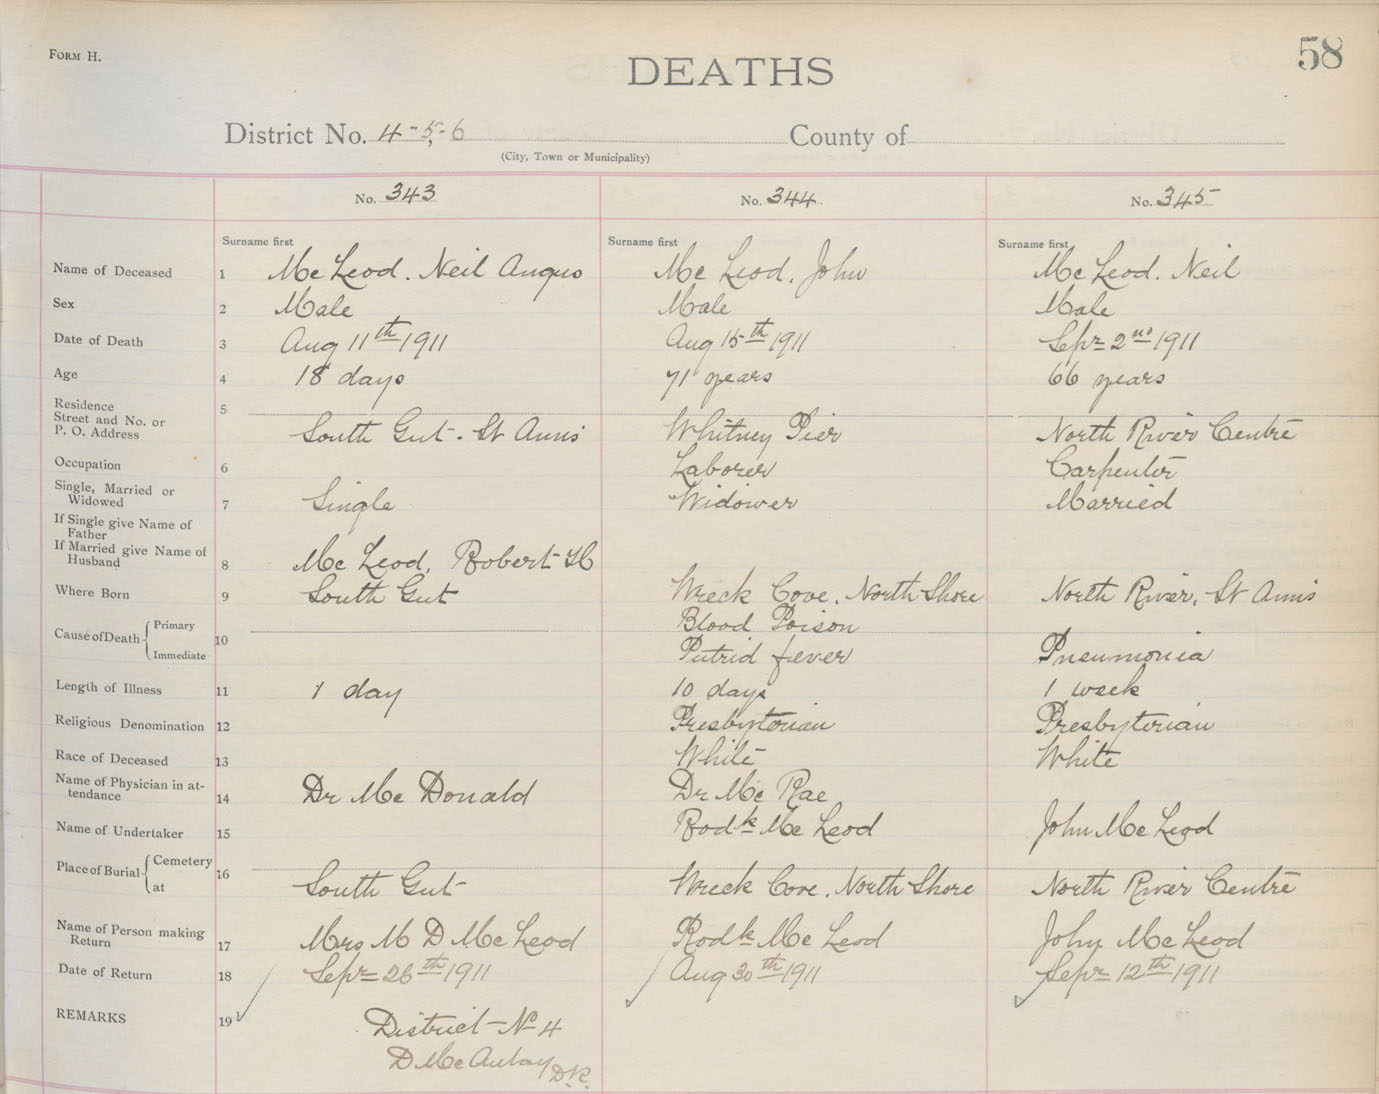 Form H.
58
DEATHS
District No. 4-5-6 County of
(City, Town or Municipality)
No. 343 No. 344 No. 345
Surname first Surname first Surname first
Name of Deceased 1 Mc Leod. Neil Angus Mc Leod. John Mc Leod. Neil
Sex 2 Male Male Male
Date of Death 3 Aug 11th 1911 Aug 15th 1911 Sepr 2nd 1911
Age 4 18 days 71 years 66 years
Residence
Street and No. or 5
P. O. Address South Gut - St Anns Whitney Pier North River Centre
Occupation 6 Laborer Carpenter
Single, Married or
Widowed 7 Single Widower Married
If Single give Name of
Father
If Married give Name of
Husband 8 Mc Leod, Robert H
Where Born 9 South Gut Wreck Cove. North Shore North River, St Anns
Cause of Death Primary 10 Blood Poison
Immediate Putrid fever Pneumonia
Length of Illness 11 1 day 10 days 1 week
Religious Denomination 12 Presbyterian Presbyterian
Race of Deceased 13 White White
Name of Physician in at-
tendance 14 Dr Mc Donald Dr Mc Rae
Name of Undertaker 15 Rodk Mc Leod John Mc Leod
Place of Burial Cemetery 16
at South Gut Wreck Cove. North Shore North River Centre
Name of Person making
Return 17 Mrs M D Mc Leod Rodk Mc Leod John Mc Leod
Date of Return 18 Sepr 26th 1911 Aug 30th 1911 Sepr 12th 1911
REMARKS 19 District No 4
D McAulay D.R.